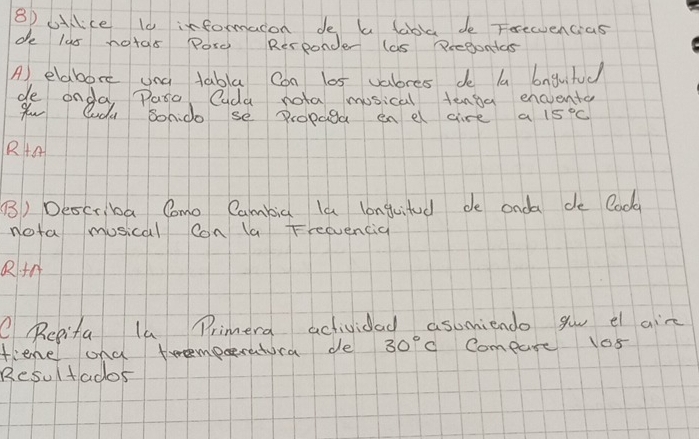 8) utilice la informacon de la tabla de Ferecuencias
de las notas Para Responder las Preguntas
A) elabore una tabla Con los valores de la longuitud
de onda Para Cada nota musical tenga encuenta
que Cada Sonido se Propaga en el aire a 15°C
R+A
B) Describa Como Cambia la longuitud de onda de Cada
nota musical Con la Frecuencia
R+A
C Repita la Primera actividad asumiendo que el aire
tiene una temperatura de 30°C Compare los
Resultados